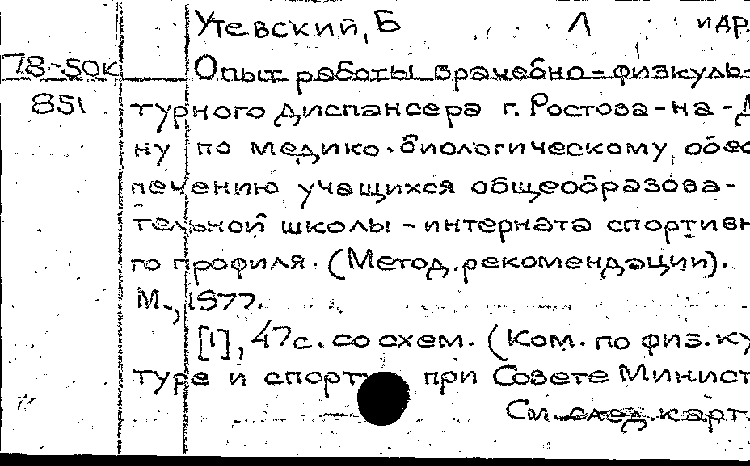 Утевский, Б Л и др.
78-50к Опыт работы врачебно-физкуль-
851 турного диспансера г. Ростова-на-Д
ну по медико-биологическому обес
печению учащихся общеобразова-
тельной школы-интерната спортивн
го профиля. (Метод. рекомендации).
М., 1977.
[1], 47с. со схем. (Ком. по физ. ку
туре и спорту при Совете Минист
См. след. карт.